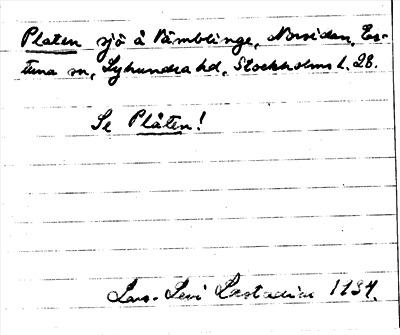 Platen sjö å Rämblinge, Norsidan, Es-
tuna sn, Lyhundra hd, Stockholms l. 28.
Se Plåten!
Lars-Levi Læstadius 1734.